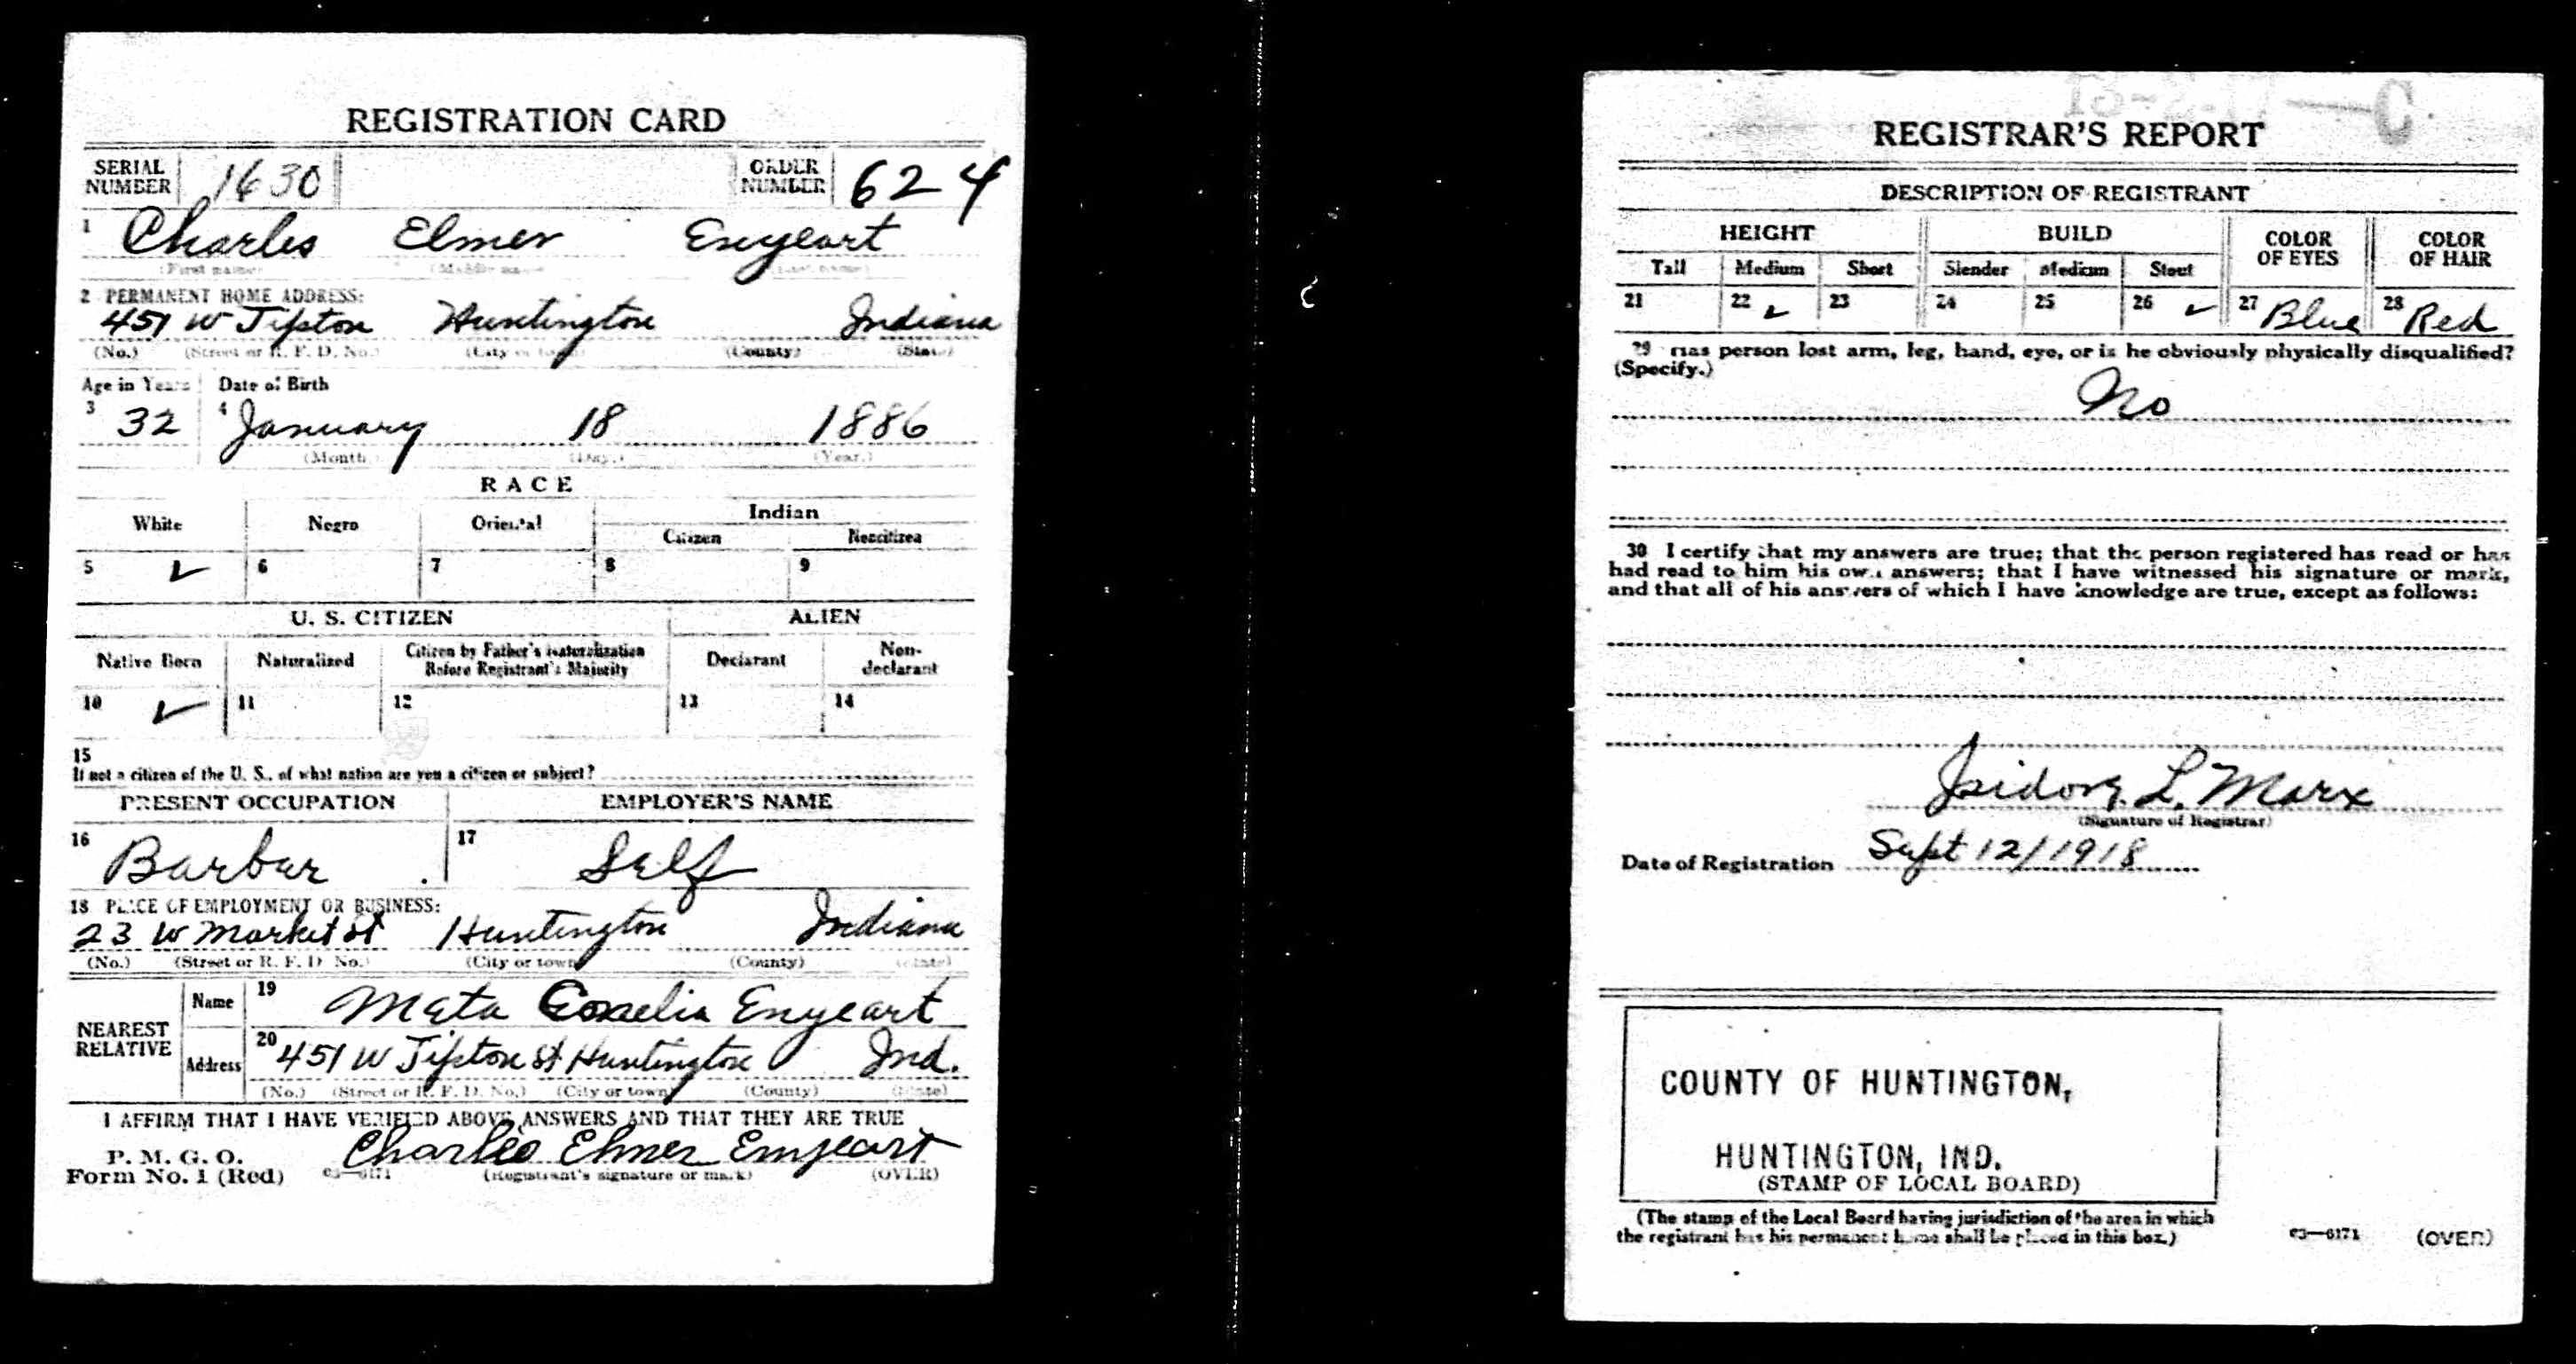 REGISTRATION CARD
SERIAL NUMBER 1630 ORDER NUMBER 624
1 Charles Elmer Enyeart
(First name) (Middle name) (Last name)
2 PERMANENT HOME ADDRESS:
451 W Tipton Huntington Indiana
(No.) (Street or R. F. D. No.) (City or town) (County) (State)
Age in Years Date of Birth
3 32 4 January 18 1886
(Month.) (Day.) (Year.)
RACE
White Negro Oriental Indian
Citizen Noncitizen
5 ✓ 6 7 8 9
U. S. CITIZEN ALIEN
Native Born Naturalized Citizen by Father's Naturalization Before Registrant's Majority Declarant Non-declarant
10 ✓ 11 12 13 14
15
If not a citizen of the U. S., of what nation are you a citizen or subject?
PRESENT OCCUPATION EMPLOYER'S NAME
16 Barber 17 Self
18 PLACE OF EMPLOYMENT OR BUSINESS:
23 W Market St Huntington Indiana
(No.) (Street or R. F. D. No.) (City or town) (County) (State)
NEAREST RELATIVE Name 19 Meta Cornelia Enyeart
Address 20 451 W Tipton St Huntington Ind.
(No.) (Street or R. F. D. No.) (City or town) (County) (State)
I AFFIRM THAT I HAVE VERIFIED ABOVE ANSWERS AND THAT THEY ARE TRUE
Charles Elmer Enyeart
P. M. G. O.
Form No. 1 (Red) 03—6171 (Registrant's signature or mark) (OVER)
REGISTRAR'S REPORT
DESCRIPTION OF REGISTRANT
HEIGHT BUILD COLOR OF EYES COLOR OF HAIR
Tall Medium Short Slender Medium Stout
21 22 ✓ 23 24 25 26 ✓ 27 Blue 28 Red
29 Has person lost arm, leg, hand, eye, or is he obviously physically disqualified?
(Specify.)
No
30 I certify that my answers are true; that the person registered has read or has
had read to him his own answers; that I have witnessed his signature or mark,
and that all of his answers of which I have knowledge are true, except as follows:
Isidore L. Marx
(Signature of Registrar)
Date of Registration Sept 12/1918
COUNTY OF HUNTINGTON,
HUNTINGTON, IND.
(STAMP OF LOCAL BOARD)
(The stamp of the Local Board having jurisdiction of the area in which
the registrant has his permanent home shall be placed in this box.)
03—6171 (OVER)